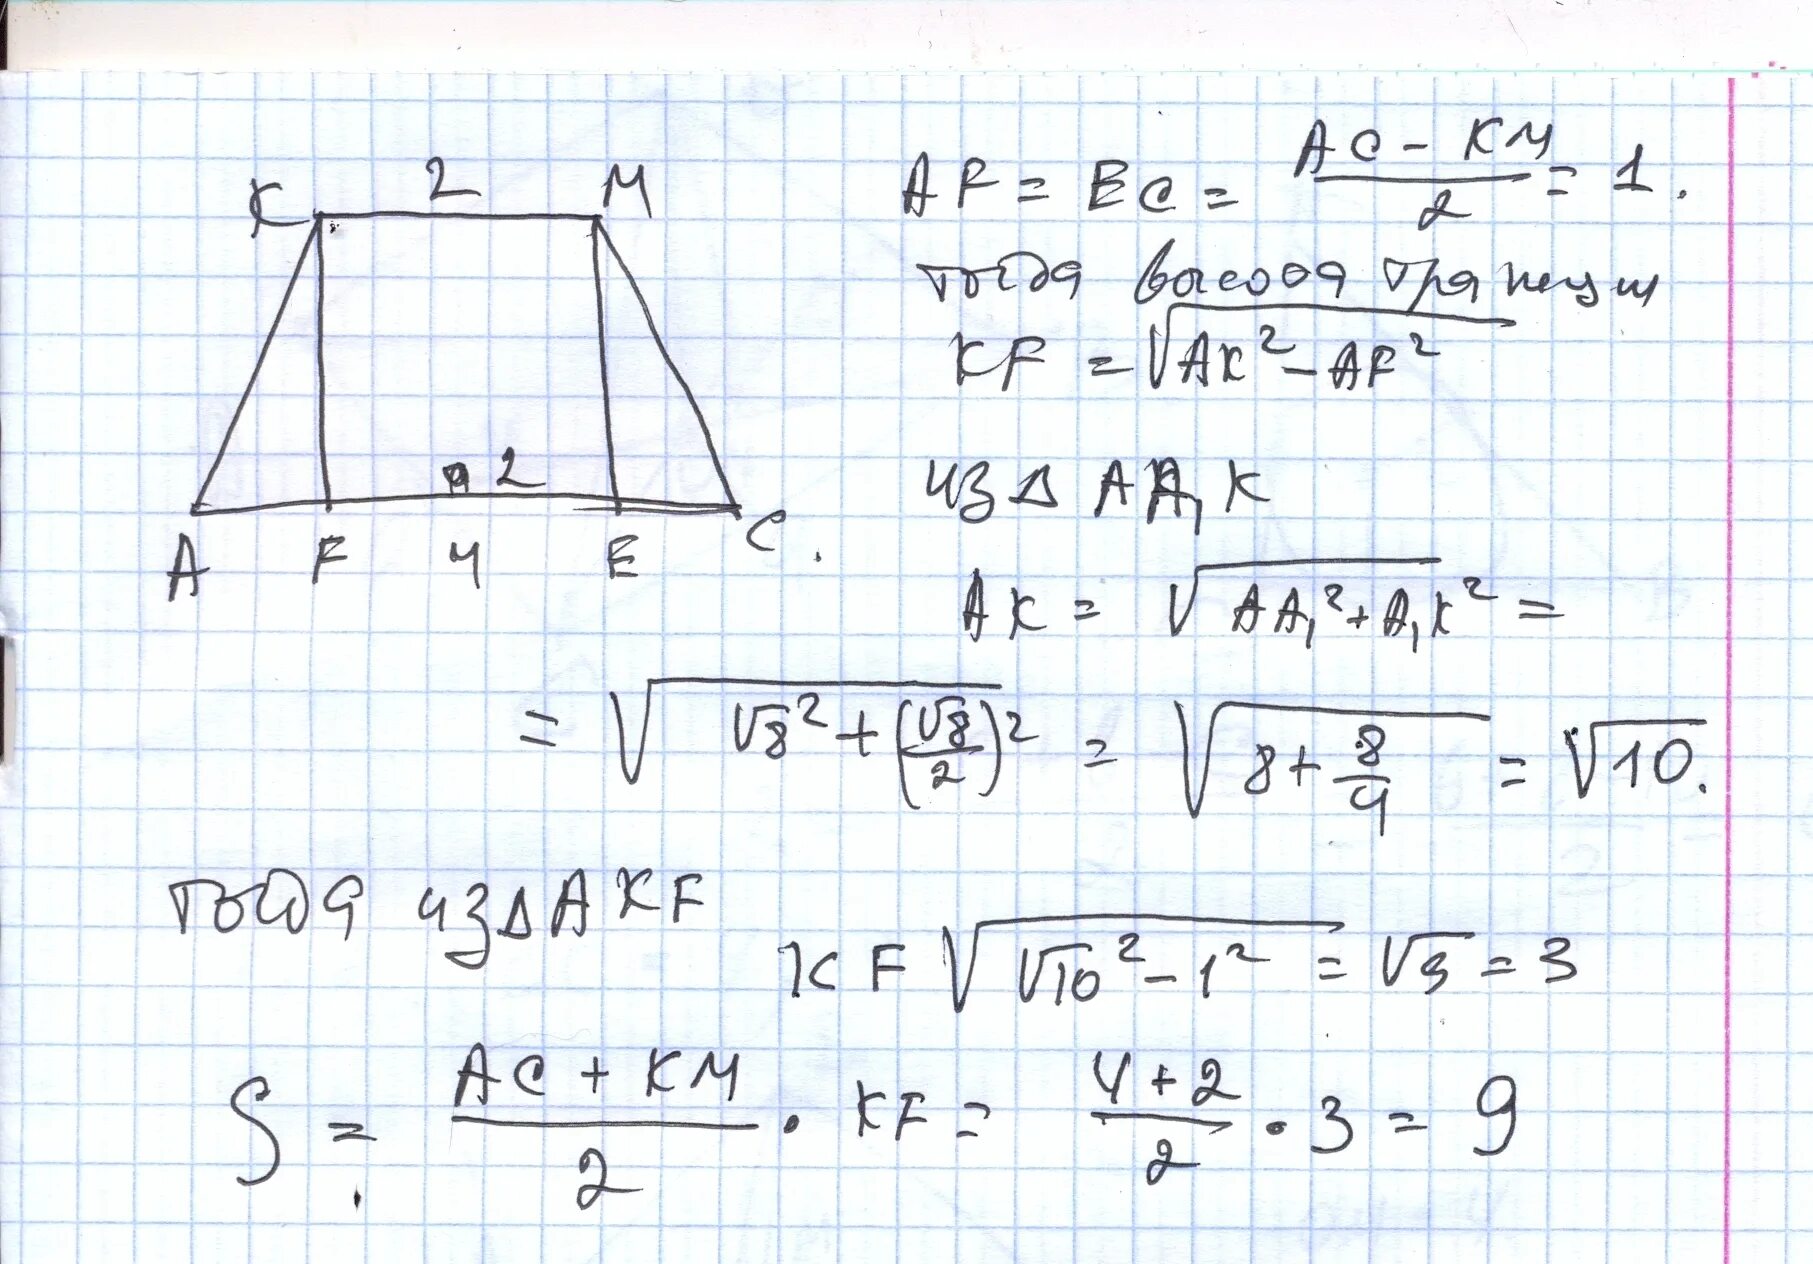 K 2 M
2
A F 4 E C.
AF = EC = (AC - KM)/2 = 1.
тогда высота трапеции
KF = √(AK² - AF²)
из Δ AA₁K
AK = √(AA₁² + A₁K²) =
= √(√8² + (√8/2)²) = √(8 + 8/4) = √10.
тогда из Δ AKF
KF √(√10² - 1²) = √9 = 3
S = (AC + KM)/2 · KF = (4 + 2)/2 · 3 = 9